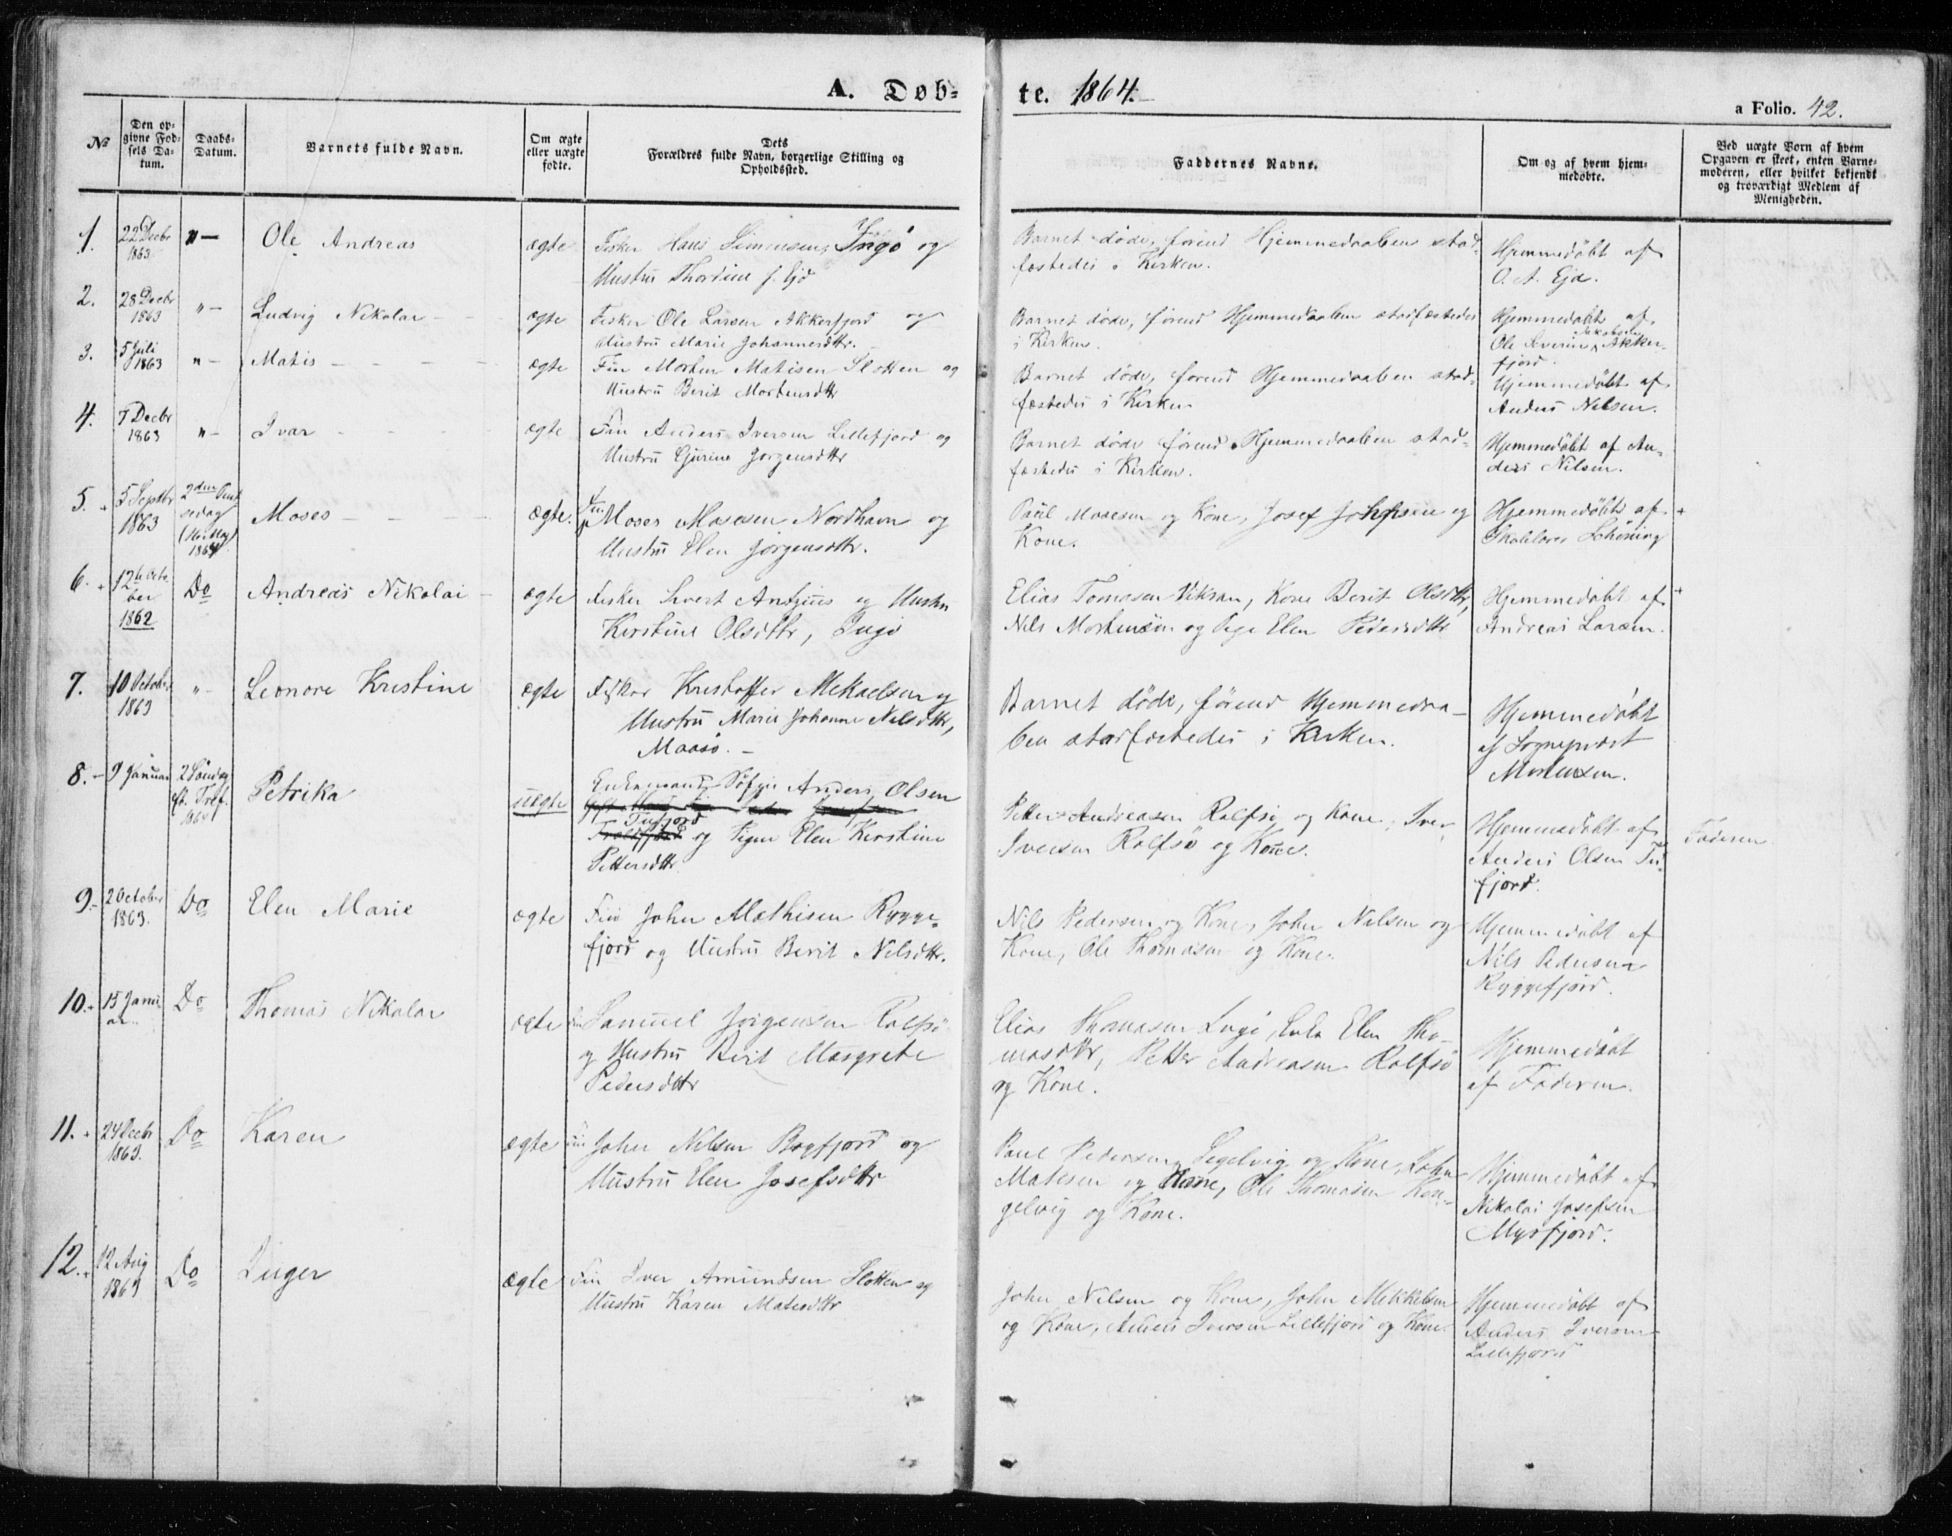 A. Døb-
te. 1864.
a Folio. 42.
No
Den op-
givne Fød-
sels Da-
tum.
Daabs-
Datum.
Barnets fulde Navn.
Om ægte
eller uægte
fødte.
Dets
Forældres fulde Navn, borgerlige Stilling og
Opholdssted.
Faddernes Navne.
Om og af hvem hjem-
medøbte.
Ved uægte Børn af hvem
Opgaven er skeet, enten Barne-
moderen, eller hvilket bekjendt
og troværdigt Medlem af
Menigheden.
1.
22 Decbr
1863
"-
Ole Andreas
ægte
Fisker Hans Simonsen, Ingø og
Hustru Thordine f. Ejd
Barnet døde, førend Hjemmedaaben stad-
fæstedes i Kirken.
Hjemmedøbt af
O. A. Ejd.
2.
28 Decbr
1863
"-
Ludvig Nikolai
ægte
Fisker Ole Larsen Akkerfjord og
Hustru Marie Johannesdttr.
Barnet døde, førend Hjemmedaaben stadfæstedes
i Kirken.
Hjemmedøbt af
Ole Akker-
fjord
3.
5 Juli
1863
"-
Matis
ægte
Fin Morten Matisen Slotten og
Hustru Berit Mortensdttr
Barnet døde, førend Hjemmedaaben stad-
fæstedes i Kirken
Hjemmedøbt af
Anders Nilsen.
4.
7 Decbr
1863
"-
Ivar
ægte
Fin Anders Iversen Lillefjord og
Hustru Gjurine Jørgensdttr
Barnet døde førend Hjemmedaaben stad-
fæstedes i Kirken.
Hjemmedøbt af An-
ders Nilsen.
5.
5 Septbr
1863
2den
1864
Moses
ægte.
Fin Moses Mosesen Nordhavn og
Hustru Elen Jørgensdttr.
Paul Mosesen og Kone, Josef Johnsen og
Kone.
Hjemmedøbt af
Skolelærer Schøning
6.
12te Octo-
ber
1862
Do
Andreas Nikolai
ægte
Fisker Sivert Antjius og Hustru
Kirstine Olsdttr, Ingø
Elias Tomasen Viksan, Kone Berit Olsdttr,
Nils Mortensen og Pige Elen Pedersdttr
Hjemmedøbt af
Andreas Larsen.
7.
10 October
1863
"-
Leonore Kristine
ægte
Fisker Kristoffer Mikaelsen og
Hustru Marie Johanne Nilsdttr,
Maasø.
Barnet døde, førend Hjemmedaa-
ben stadfæstedes i Kirken.
Hjemmedøbt
af Sognepræst
Mortensen.
8.
9 Januar
2 Søndag
ef. Tref.
1864
Petrika
uægte
Enkemand Søfin Anders Olsen
Tufjord
og Pigen Elen Kirstine
Pettersdttr
Petter Andreasen Rolfsø og Kone, Iver
Iversen Rolfsø og Kone.
Hjemmedøbt af
Anders Olsen Tu-
fjord.
Faderen
9.
2 October
1863.
Do
Elen Marie
ægte
Fin John Mathisen Rygge-
fjord og Hustru Berit Nilsdttr.
Nils Pedersen og Kone, John Nilsen og
Kone, Ole Thomasen og Kone.
Hjemmedøbt af
Nils Pedersen
Ryggefjord.
10.
15 Janu-
ar.
Do
Thomas Nikolai
ægte
Fin Samuel Jørgensen Rolfsø
og Hustru Berit Margrete
Pedersdttr
Elias Thomasen Ingø, Enke Elen Tho-
masdttr, Petter Andreasen Rolfsø
og Kone.
Hjemmedøbt
af Faderen.
11.
24 Decbr
1863.
Do
Karen
ægte
Fin John Nilsen Bogfjord og
Hustru Elen Josefsdttr
Paul Pedersen Segelvig og Kone, John
Matisen og Kone, Ole Thomasen Kon-
gelvig og Kone.
Hjemmedøbt af
Nikolai Josefsen
Myrfjord.
12.
12 Aug
1863
Do
Inger
ægte
Fin Iver Amundsen Slotten og
Hustru Karen Matisdttr
John Nilsen og Kone, John Mikkelsen
og Kone, Anders Iversen Lillefjord og Kone.
Hjemmedøbt af
Anders Iversen
Lillefjord